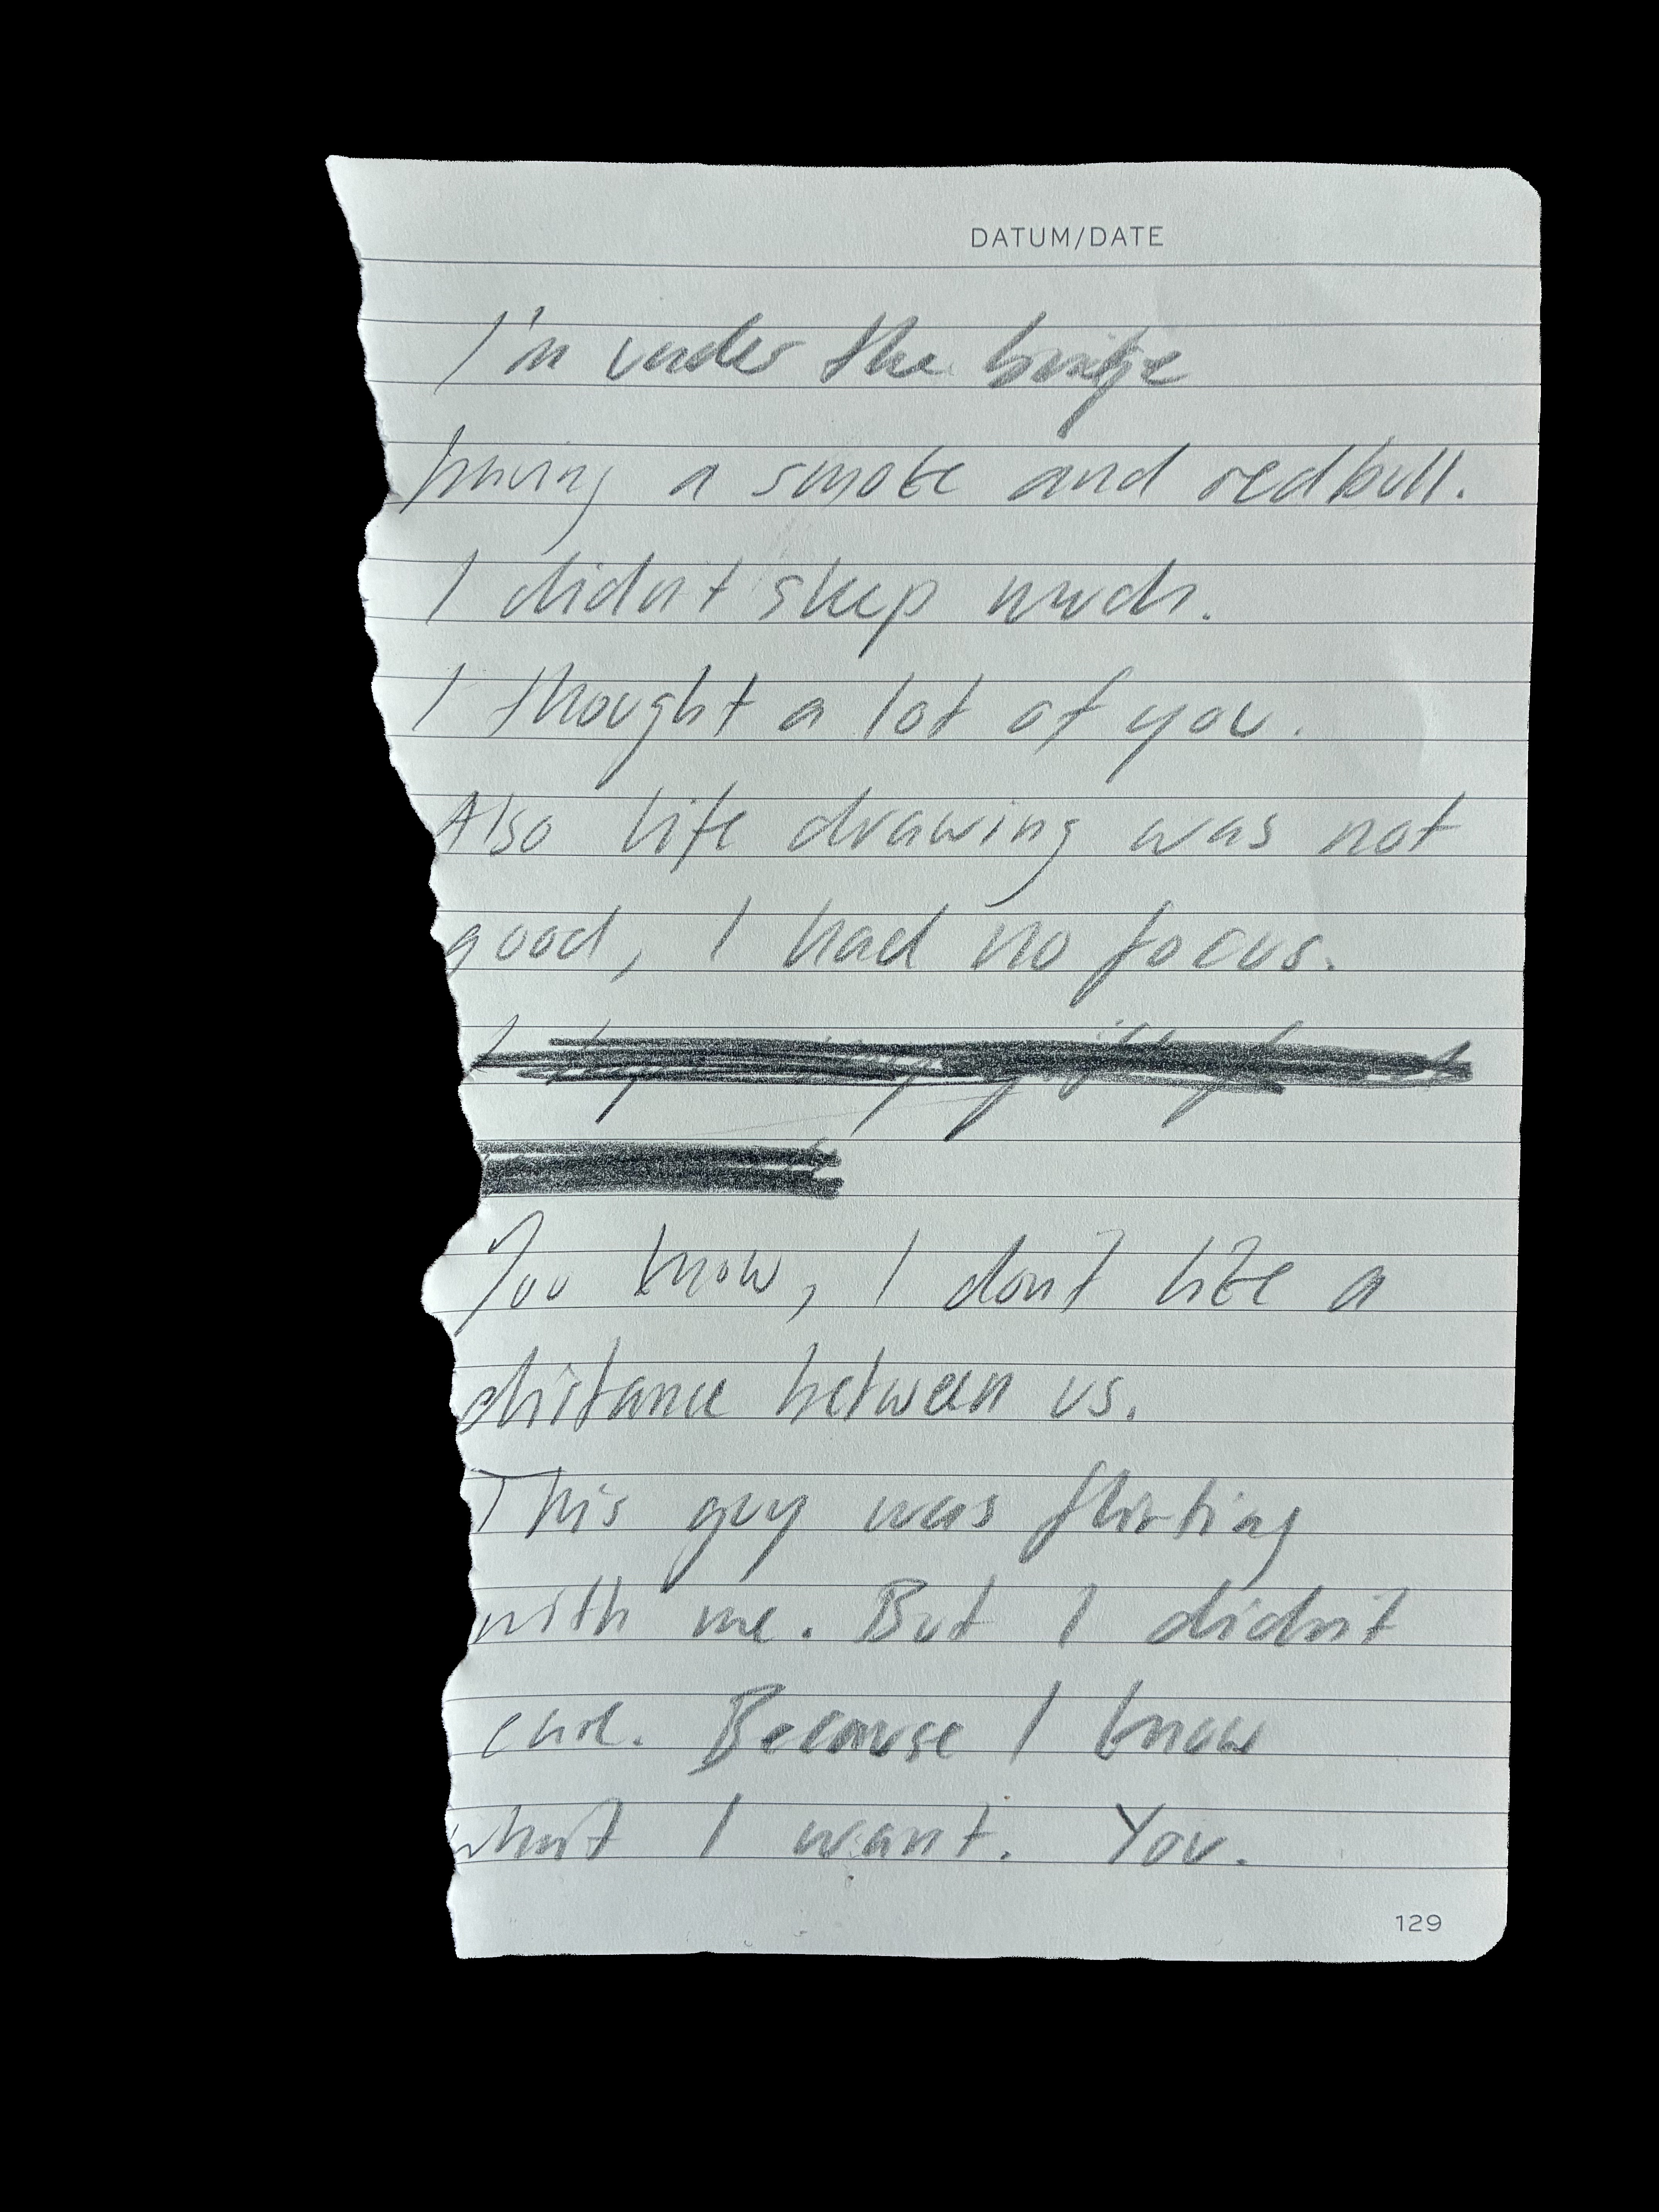 DATUM/DATE
I'm under the bridge
having a smoke and redbull.
I didn't sleep much.
I thought a lot of you.
Also life drawing was not
good, I had no focus.
You know, I don't like a
distance between us.
This guy was flirting
with me. But I didn't
care. Because I know
what I want. You.
129